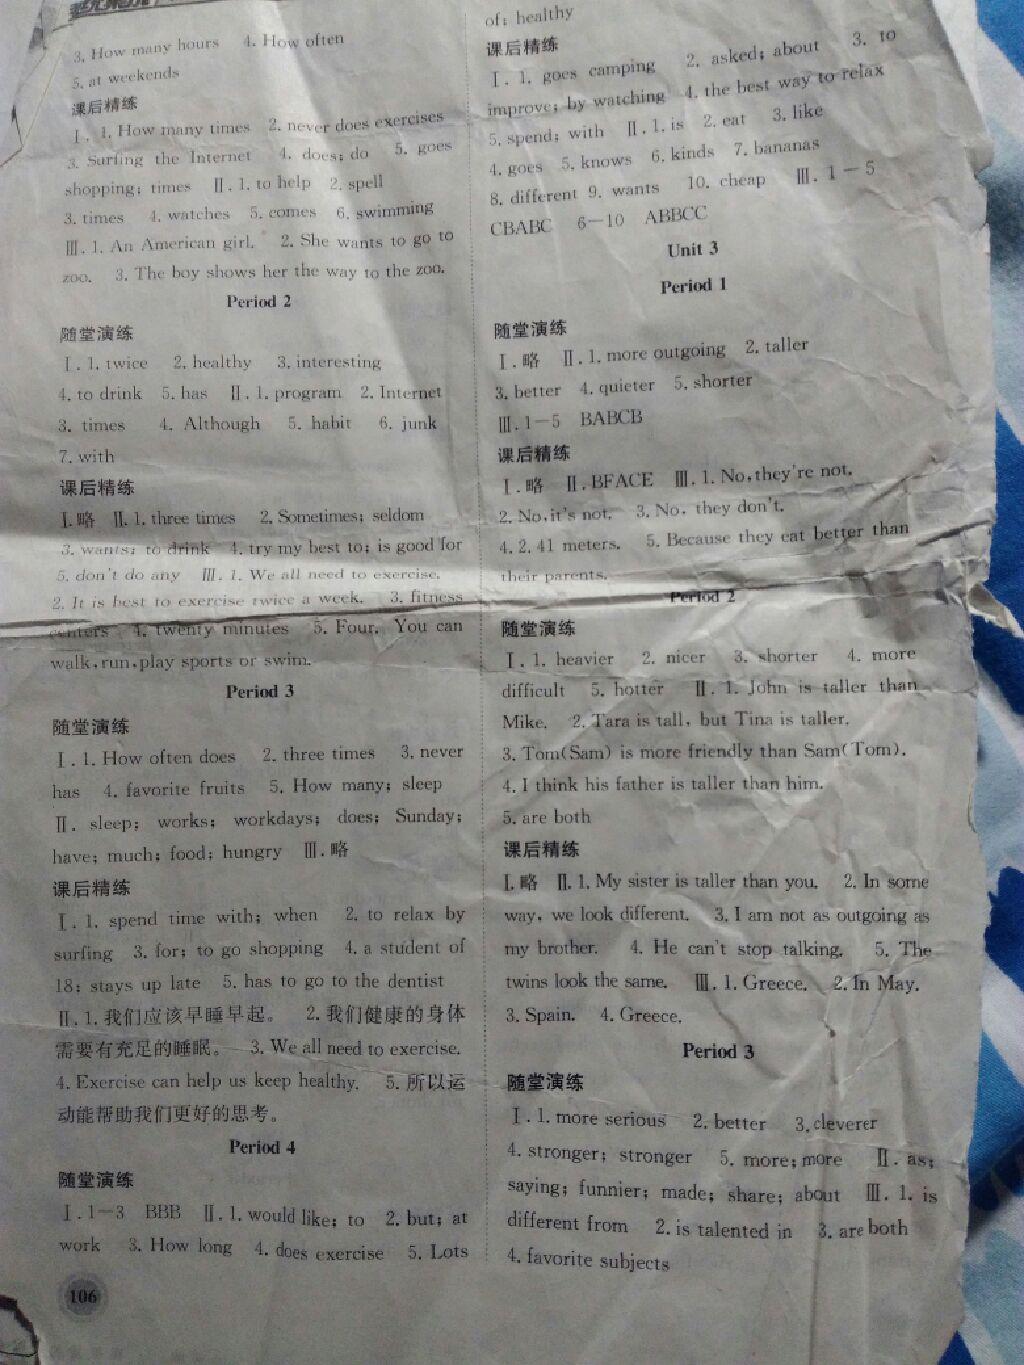 3. How many hours 4. How often
5. at weekends
课后精练
Ⅰ. 1. How many times 2. never does exercises
3. Surfing the Internet 4. does; do 5. goes
shopping; times Ⅱ. 1. to help 2. spell
3. times 4. watches 5. comes 6. swimming
Ⅲ. 1. An American girl. 2. She wants to go to
zoo. 3. The boy shows her the way to the zoo.
Period 2
随堂演练
Ⅰ. 1. twice 2. healthy 3. interesting
4. to drink 5. has Ⅱ. 1. program 2. Internet
3. times 4. Although 5. habit 6. junk
7. with
课后精练
Ⅰ. 略 Ⅱ. 1. three times 2. Sometimes; seldom
3. wants; to drink 4. try my best to; is good for
5. don't do any Ⅲ. 1. We all need to exercise.
2. It is best to exercise twice a week. 3. fitness
centers 4. twenty minutes 5. Four. You can
walk, run, play sports or swim.
Period 3
随堂演练
Ⅰ. 1. How often does 2. three times 3. never
has 4. favorite fruits 5. How many; sleep
Ⅱ. sleep; works; workdays; does; Sunday;
have; much; food; hungry Ⅲ. 略
课后精练
Ⅰ. 1. spend time with; when 2. to relax by
surfing 3. for; to go shopping 4. a student of
18; stays up late 5. has to go to the dentist
Ⅱ. 1. 我们应该早睡早起。 2. 我们健康的身体
需要有充足的睡眠。 3. We all need to exercise.
4. Exercise can help us keep healthy. 5. 所以运
动能帮助我们更好的思考。
Period 4
随堂演练
Ⅰ. 1—3 BBB Ⅱ. 1. would like; to 2. but; at
work 3. How long 4. does exercise 5. Lots
106
of; healthy
课后精练
Ⅰ. 1. goes camping 2. asked; about 3. to
improve; by watching 4. the best way to relax
5. spend; with Ⅱ. 1. is 2. eat 3. like
4. goes 5. knows 6. kinds 7. bananas
8. different 9. wants 10. cheap Ⅲ. 1—5
CBABC 6—10 ABBCC
Unit 3
Period 1
随堂演练
Ⅰ. 略 Ⅱ. 1. more outgoing 2. taller
3. better 4. quieter 5. shorter
Ⅲ. 1—5 BABCB
课后精练
Ⅰ. 略 Ⅱ. BFACE Ⅲ. 1. No, they're not.
2. No, it's not. 3. No, they don't.
4. 2. 41 meters. 5. Because they eat better than
their parents.
Period 2
随堂演练
Ⅰ. 1. heavier 2. nicer 3. shorter 4. more
difficult 5. hotter Ⅱ. 1. John is taller than
Mike. 2. Tara is tall, but Tina is taller.
3. Tom(Sam) is more friendly than Sam(Tom).
4. I think his father is taller than him.
5. are both
课后精练
Ⅰ. 略 Ⅱ. 1. My sister is taller than you. 2. In some
way, we look different. 3. I am not as outgoing as
my brother. 4. He can't stop talking. 5. The
twins look the same. Ⅲ. 1. Greece. 2. In May.
3. Spain. 4. Greece.
Period 3
随堂演练
Ⅰ. 1. more serious 2. better 3. cleverer
4. stronger; stronger 5. more; more Ⅱ. as;
saying; funnier; made; share; about Ⅲ. 1. is
different from 2. is talented in 3. are both
4. favorite subjects